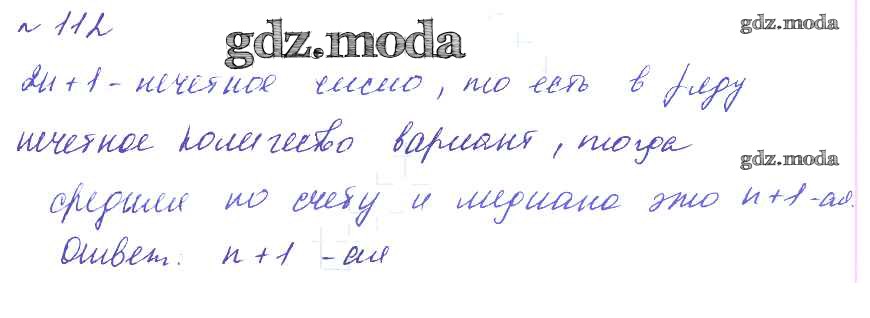 № 112
gdz.moda
gdz.moda
2n+1 - нечетное число, то есть в ряду
нечетное количество вариант, тогда
gdz.moda
средняя по счету и медиана это n+1-ая.
Ответ: n+1 -ая